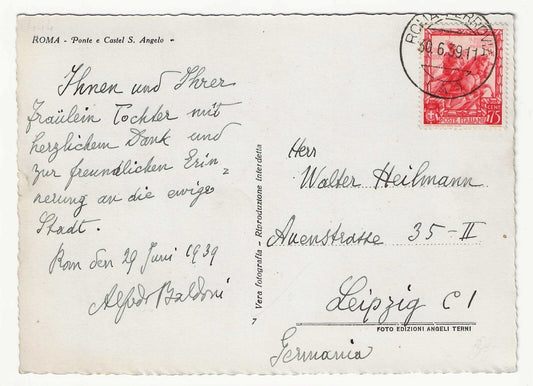 ROMA - Ponte e Castel S. Angelo
Ihnen und Ihrer
Fräulein Tochter mit
herzlichem Dank und
zur freundlichen Erin„
nerung an die ewige
Stadt.
Rom den 29 Juni 1939
Alfredo Baldoni
Vera fotografia - Riproduzione interdetta
7
ROMA FERROVIA
30.6.39 11
POSTE ITALIANE
CENT 75
Herr
Walter Heilmann
Auenstrasse 35-II
Leipzig C 1
FOTO EDIZIONI ANGELI TERNI
Germania